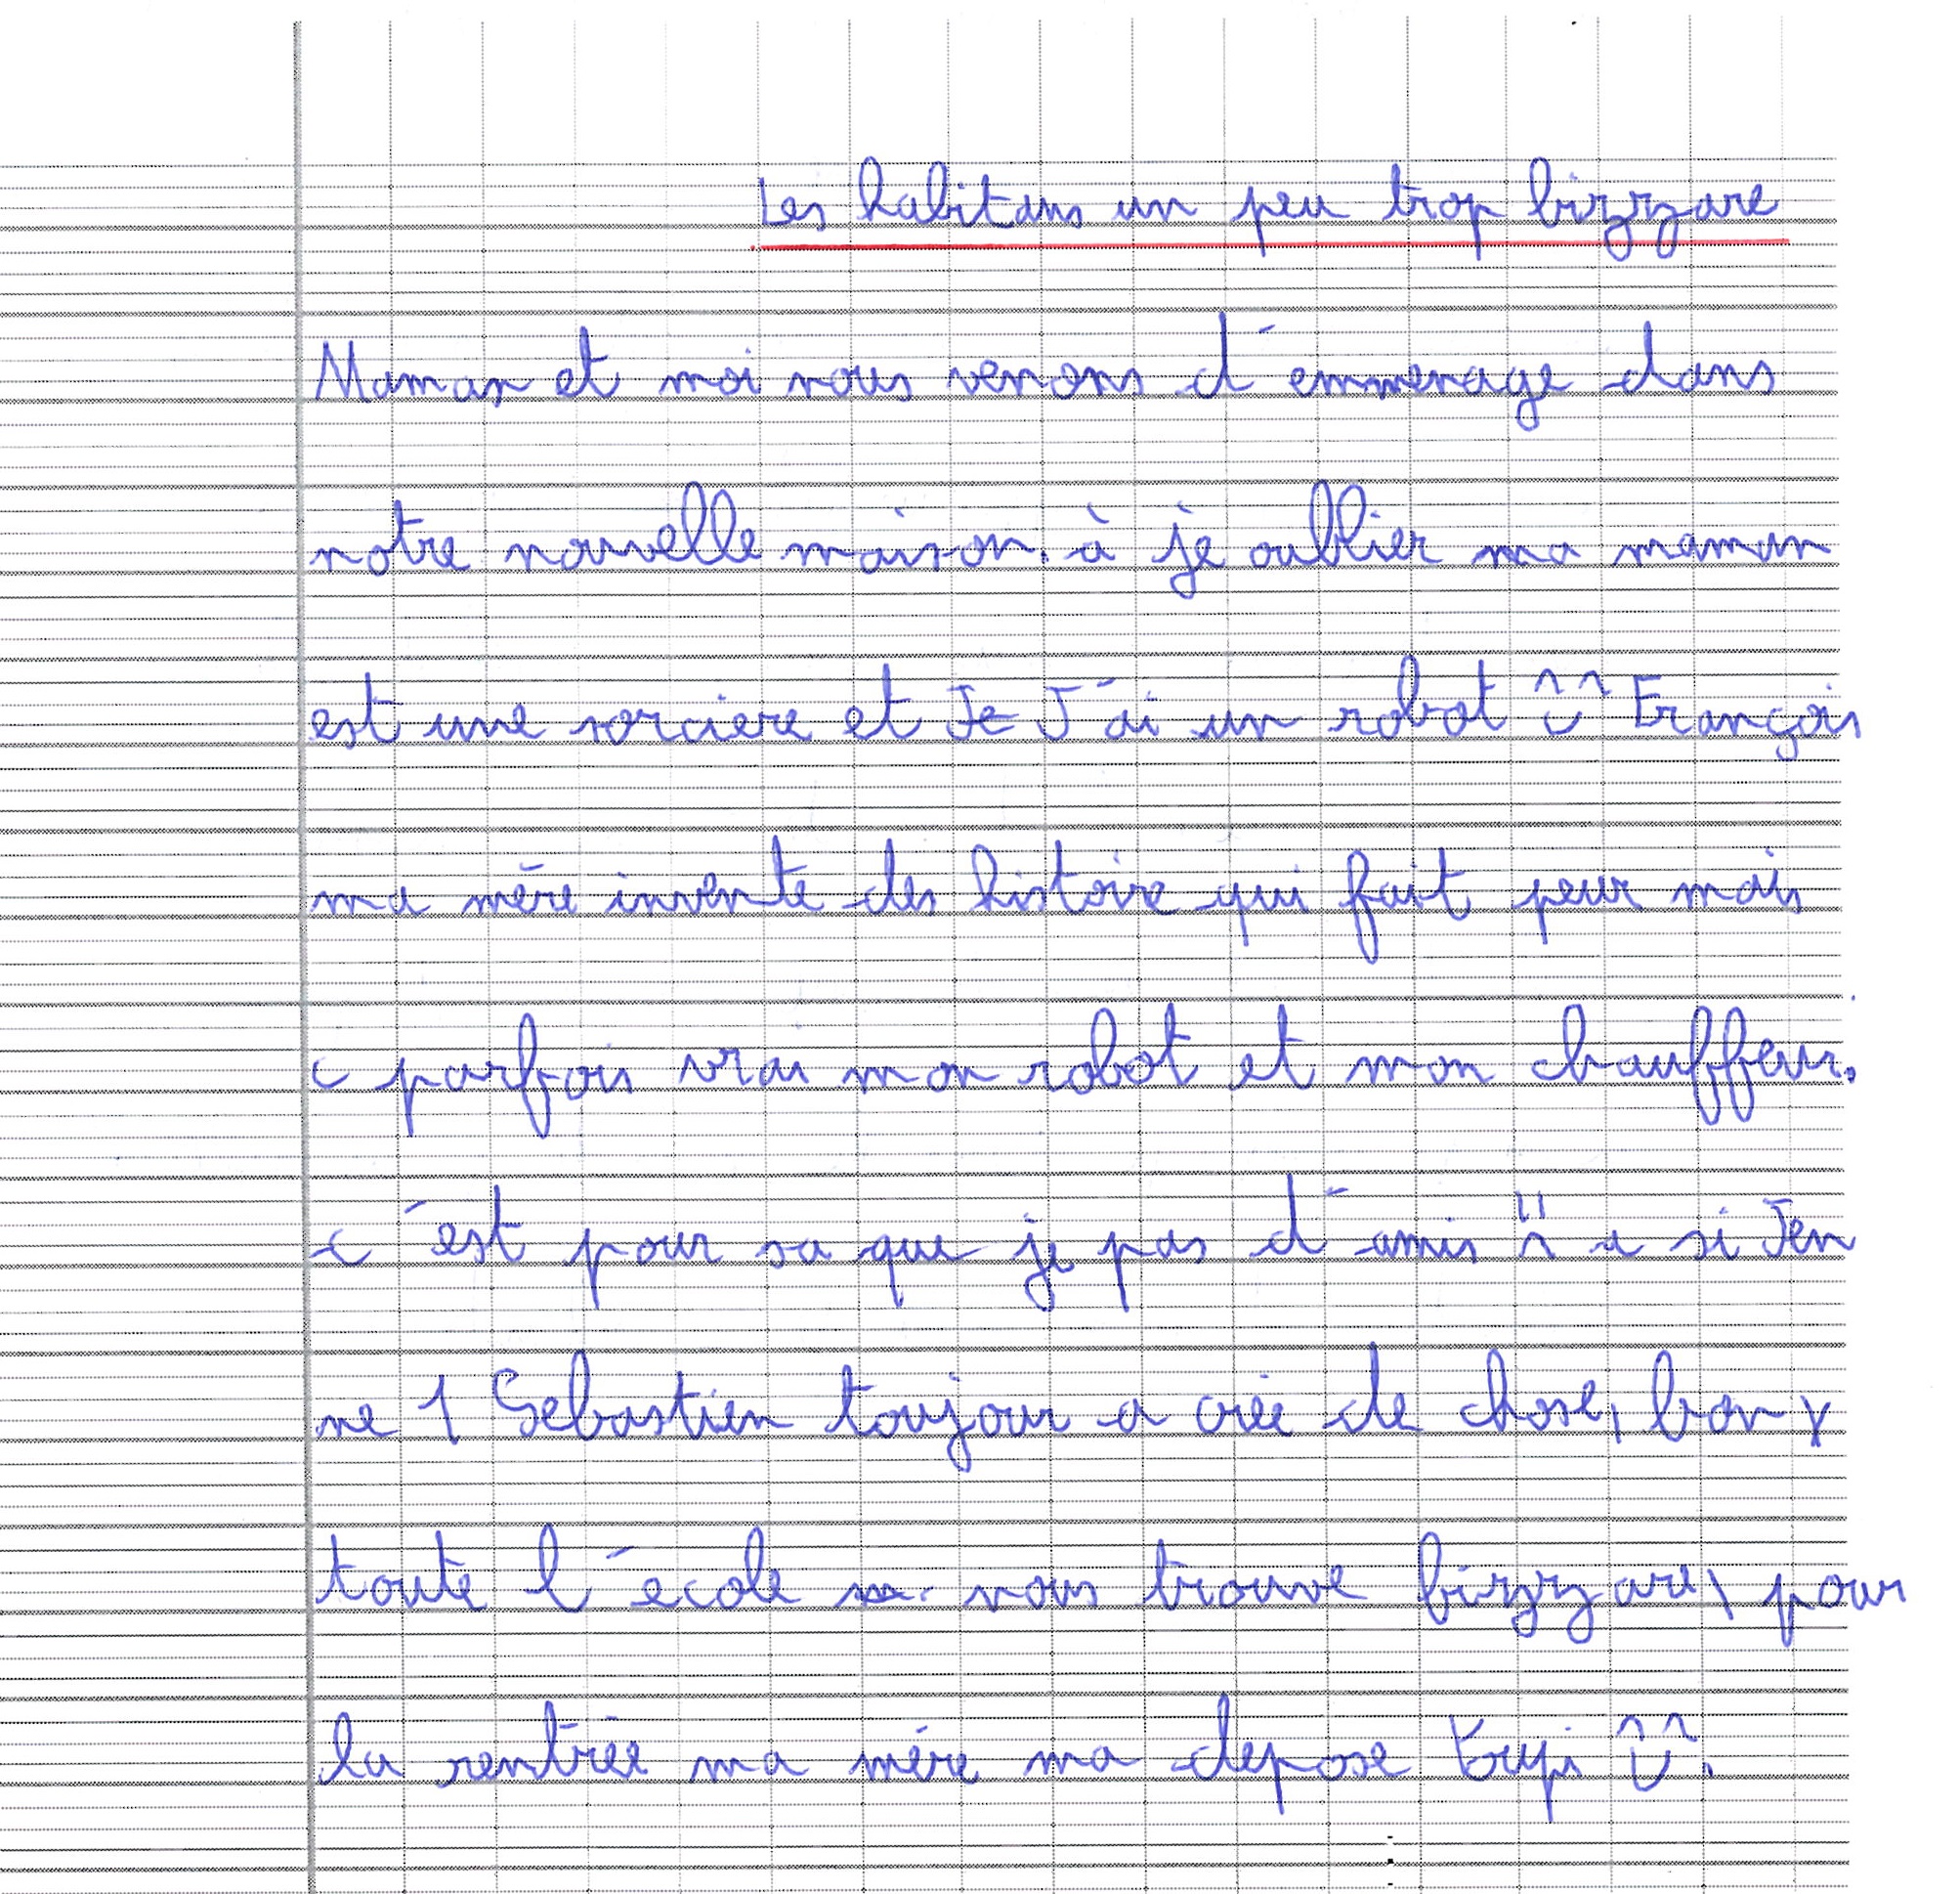 Les habitans un peu trop bizzare
Maman et moi nous venons d'emmenage dans
notre nouvelle maison. à je oublier ma maman
est une sorciere et Je J'ai un robot François
ma mère invente des histoire qui fait peur mais
c parfois vrai mon robot et mon chauffeur.
c'est pour sa que je pas d'amis a si J'en
ne 1 Sebastien toujour a crée de chose, bon y
toute l'école nous trouve bizzare, pour
la rentrée ma mére ma depose Eupi